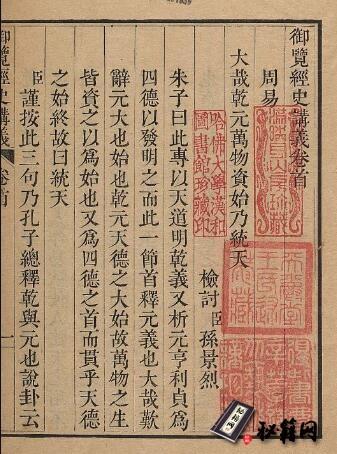 御覽經史講義卷首
周易
大哉乾元萬物資始乃統天
檢討臣孫景烈
朱子曰此專以天道明乾義又析元亨利貞爲
四德以發明之而此一節首釋元義也大哉歎
辭元大也始也乾元天德之大始故萬物之生
皆資之以爲始也又爲四德之首而貫乎天德
之始終故曰統天
臣謹按此三句乃孔子總釋乾與元也說卦云
御覽經史講義
卷首
一
哈佛大學漢和
圖書館珍藏印
秘籍网